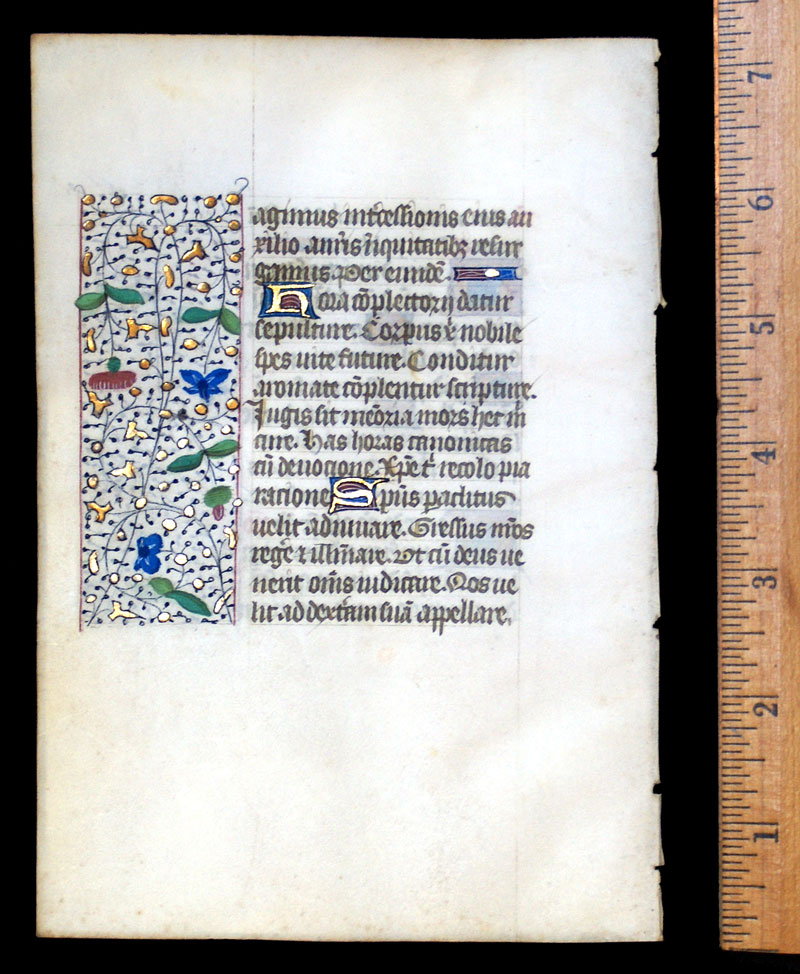 agimus intcessionis eius au
xilio a nris iniquitatibz resur
gamus. Per eundē.
Hora cōplectorij datur
sepulture. Corpus x̄ nobile
spes uite future. Conditur
aromate cōplentur scripture.
Iugis sit meōria mors hec m̄
cure. Has horas canonicas
cū deuocione. Xp̄e t̄ recolo pia
ratione Sp̄us paclitus
uelit adiuuare. Gressus nr̄os
reḡe ⁊ illīnare. Vt cū deus ue
nerit om̄s iudicare. Nos ue
lit ad dextram suā appellare.
7
6
5
4
3
2
1